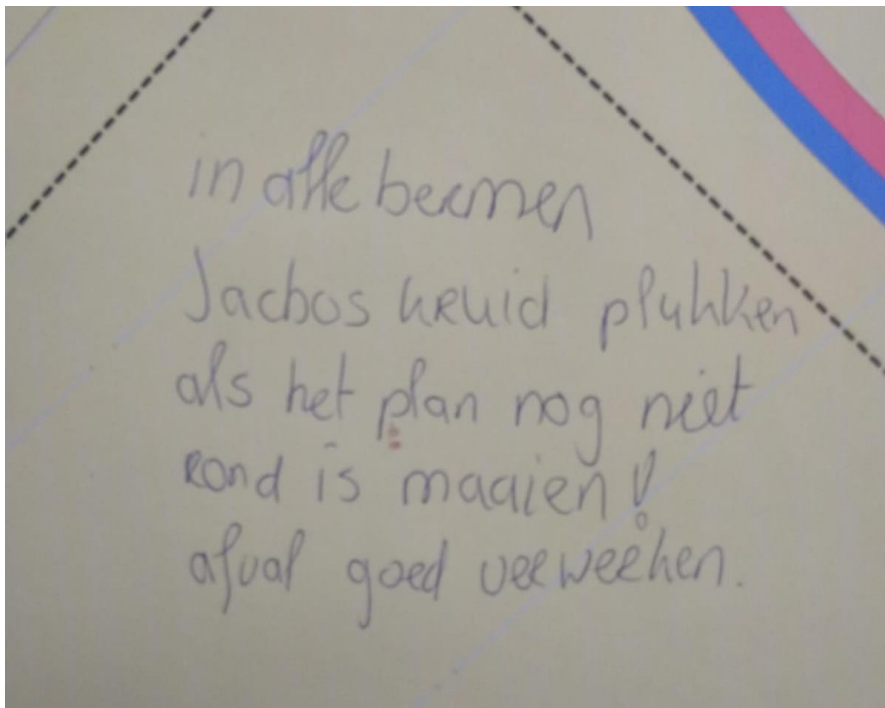 in alle bermen
Jacbos kruid plukken
als het plan nog niet
rond is maaien!
afval goed verwerken.